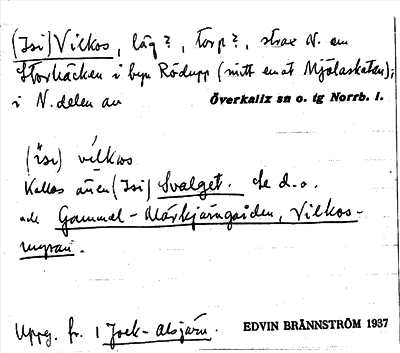 (Isi) Vilkos, läg?, torp?, strax N. om
Storbäcken i byn Rödupp (mitt emot Mjölaskatan);
i N. delen av Överkalix sn o. tg Norrb. l.
(ísi) vílkos
Kallas även (Isi) Svalget. Se d.o.
och Gammel-Märkjärngården, Vilkos-
myran.
Uppg. fr. 1 Jock-Alsjärv. EDVIN BRÄNNSTRÖM 1937